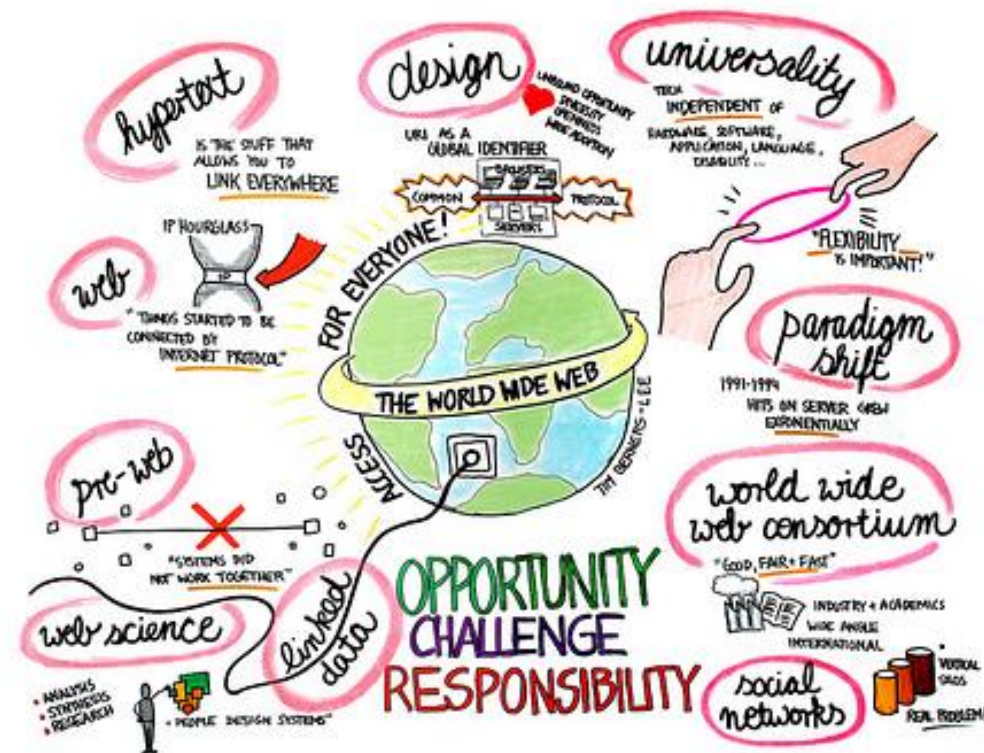 hypertext
IS THE STUFF THAT
ALLOWS YOU TO
LINK EVERYWHERE
design
UNBOUND OPPORTUNITY
DIVERSITY
OPENNESS
WIDE ADOPTION
URI AS A
GLOBAL IDENTIFIER
BROWSERS
COMMON
PROTOCOL
SERVERS
universality
TECH
INDEPENDENT OF
HARDWARE, SOFTWARE,
APPLICATION, LANGUAGE,
DISABILITY...
"FLEXIBILITY
IS IMPORTANT!"
web
IP HOURGLASS
IP
"THINGS STARTED TO BE
CONNECTED BY
INTERNET PROTOCOL"
ACCESS
FOR EVERYONE!
THE WORLD WIDE WEB
TIM BERNERS-LEE
paradigm
shift
1991-1994
HITS ON SERVER GREW
EXPONENTIALLY
pre-web
"SYSTEMS DID
NOT WORK TOGETHER"
world wide
web consortium
"GOOD, FAIR + FAST"
INDUSTRY + ACADEMICS
WIDE ANGLE
INTERNATIONAL
web science
• ANALYSIS
• SYNTHESIS
• RESEARCH
"PEOPLE DESIGN SYSTEMS"
linked
data
OPPORTUNITY
CHALLENGE
RESPONSIBILITY
social
networks
VERTICAL
SILOS
REAL PROBLEM